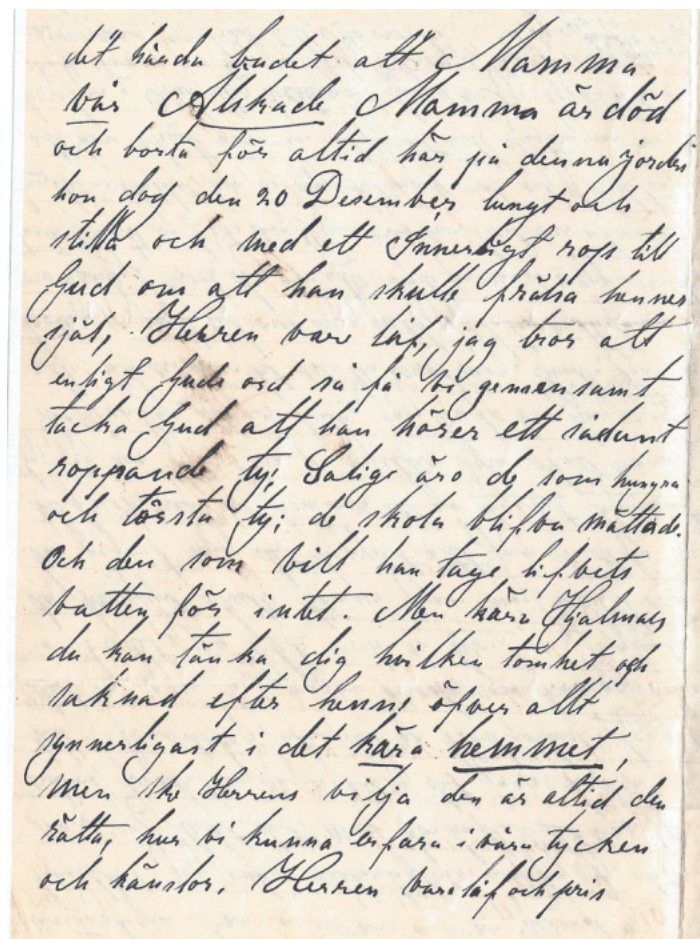 det hårda budet att Mamma
vår Älskade Mamma är död
och borta för altid här på denna jorden
hon dog den 20 Desember lungt och
stilla och med ett Innerligt rop till
Gud om att han skulle frälsa hennes
själ, Herren vare låf, jag tror att
enligt Guds ord så få vi gemensamt
tacka Gud att han hörer ett sådant
roppande ty; Salige äro de som hungra
och törsta ty; de skola blifva mättade.
Och den som vill han tage lifvets
vatten för intet. Men kära Hjalmar
du kan tänka dig hvilken tomhet och
saknad efter henne öfver allt
synnerligast i det kära hemmet,
men ske Herrens vilja den är altid den
rätta, hur vi kunna erfara i våra tycken
och känslor. Herren vare låf och pris